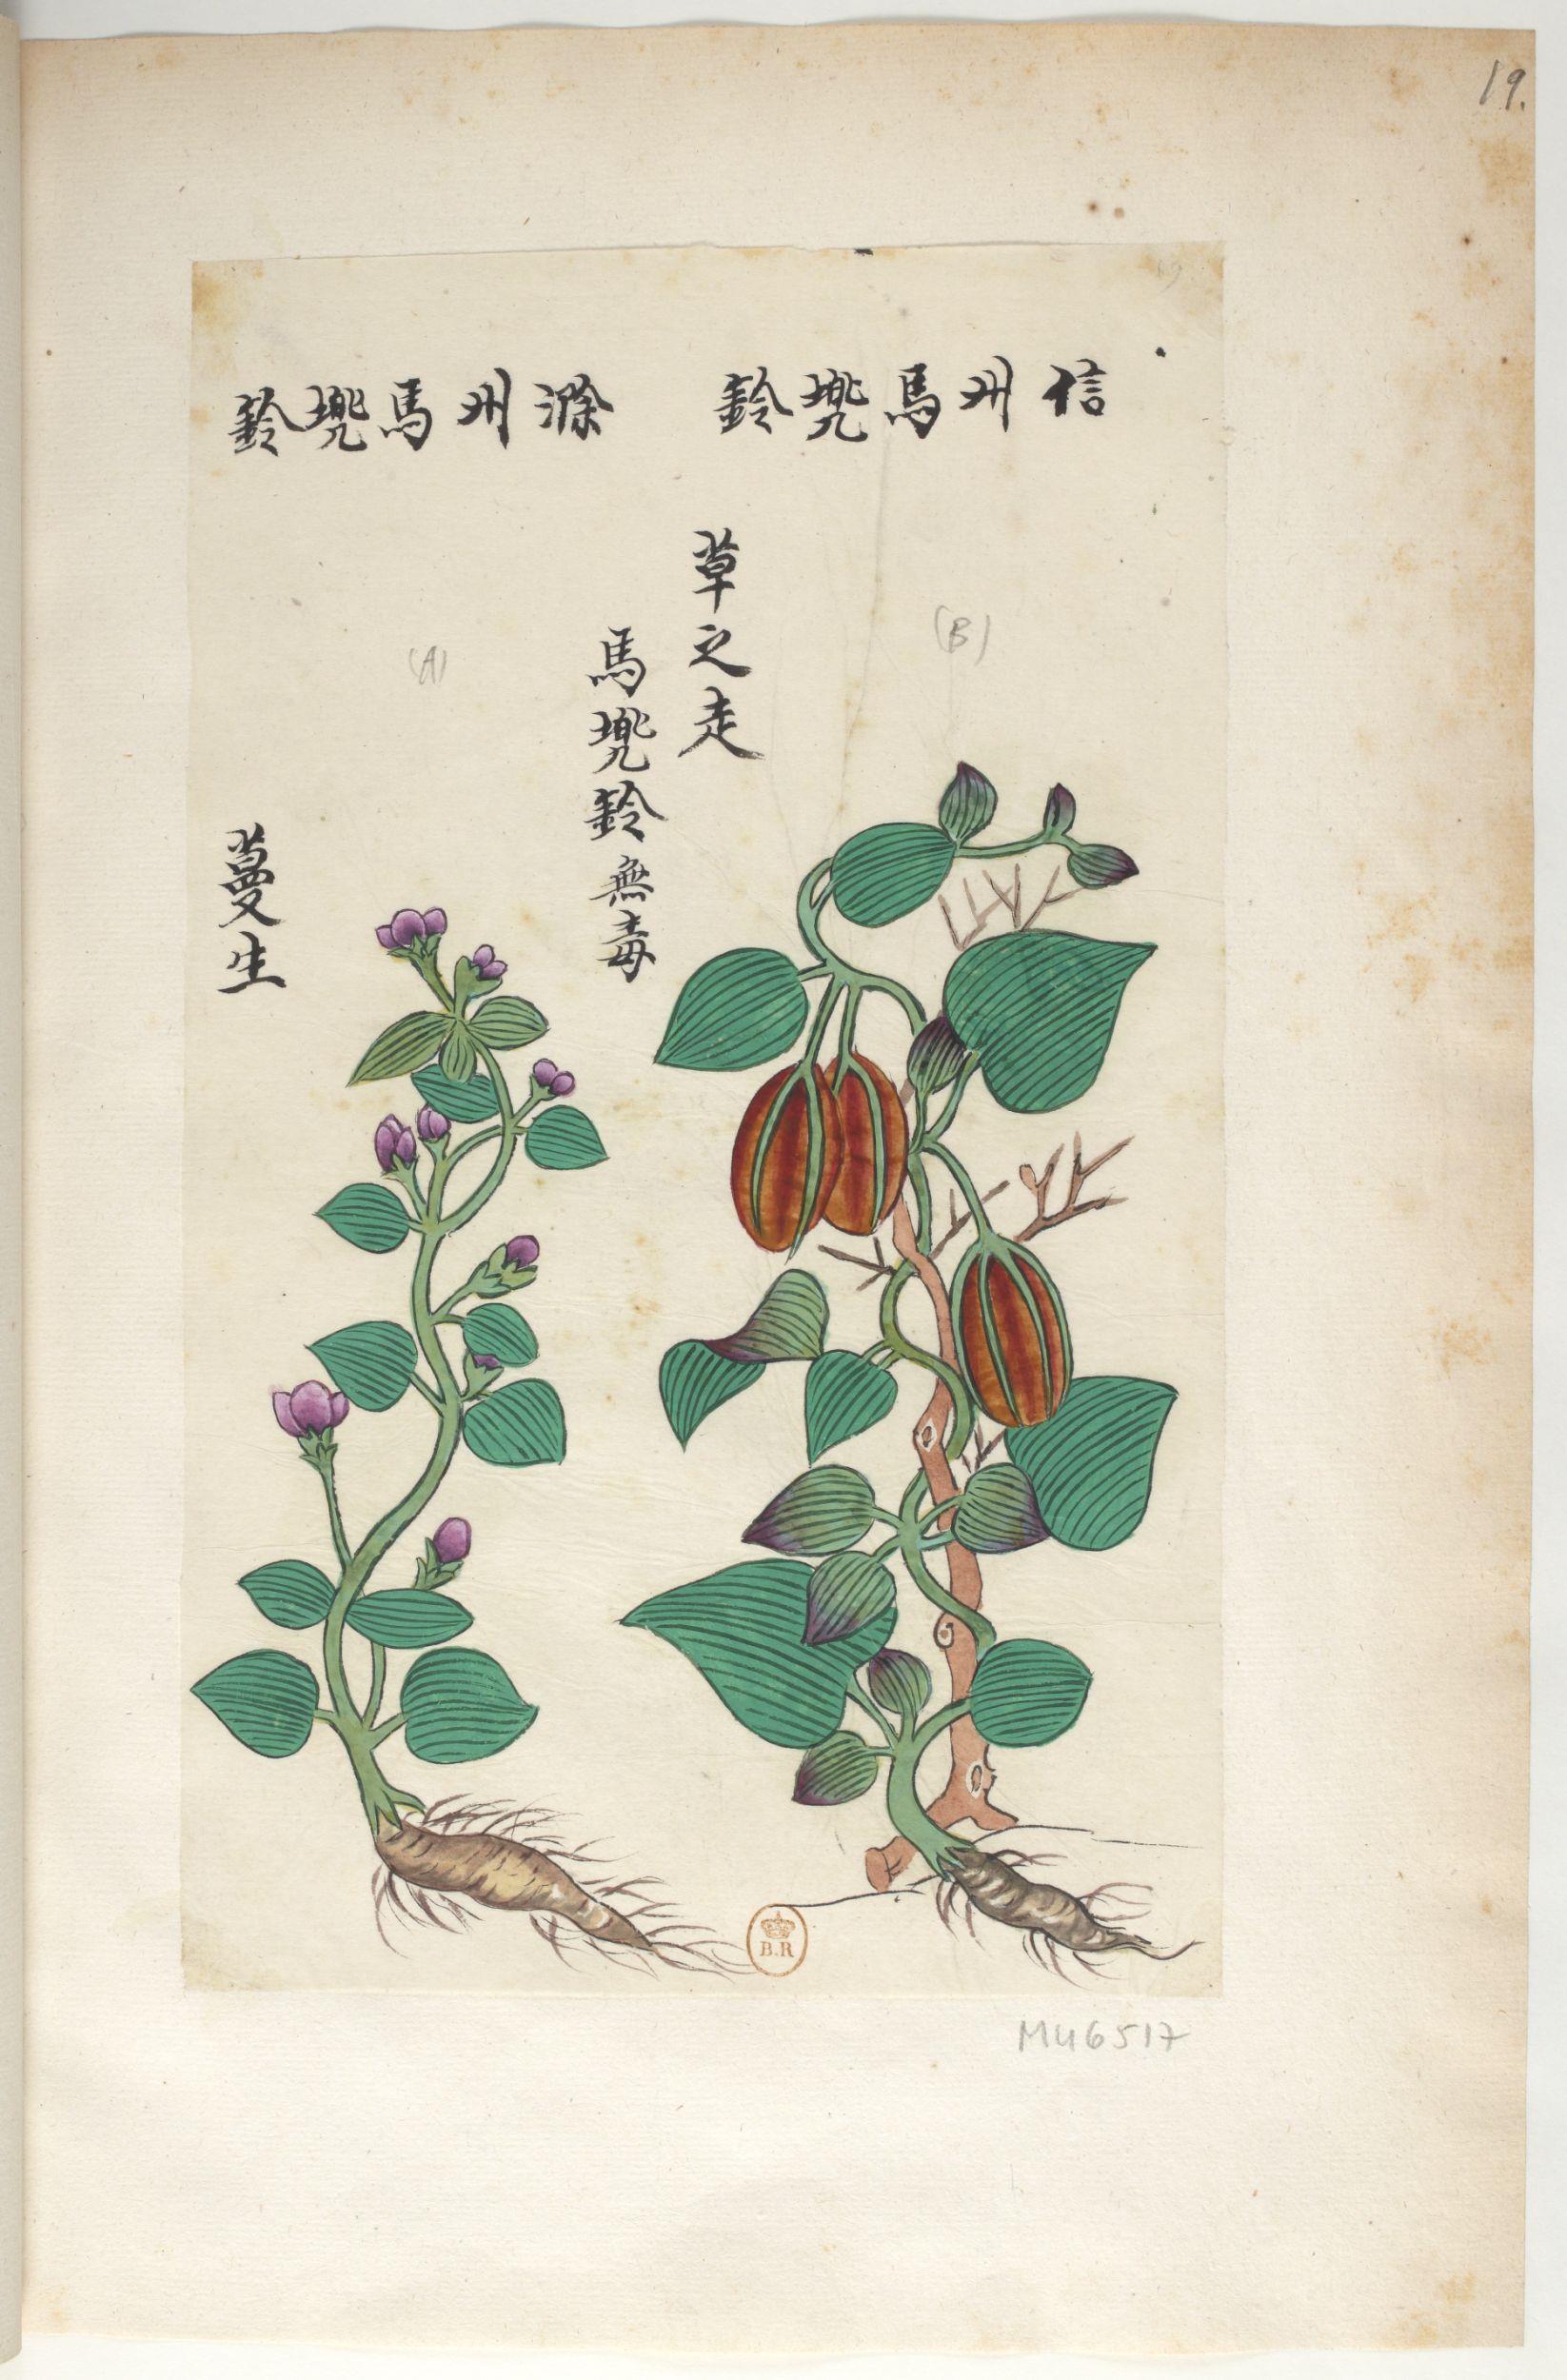 19.
信州馬兜鈴
滁州馬兜鈴
草之走
馬兜鈴無毒
蔓生
(A)
(B)
B.R
M46517